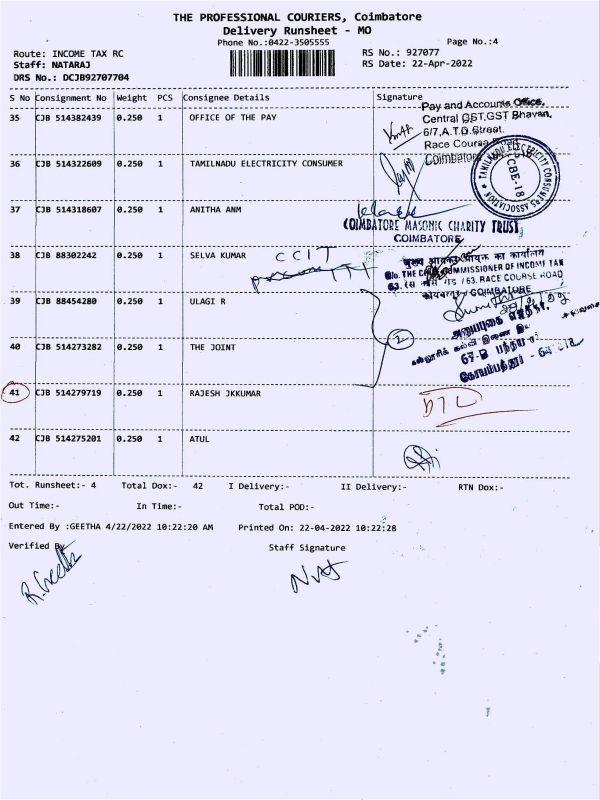 THE PROFESSIONAL COURIERS, Coimbatore
Delivery Runsheet - MO
Phone No.:0422-3505555 Page No.:4
Route: INCOME TAX RC RS No.: 927077
Staff: NATARAJ RS Date: 22-Apr-2022
DRS No.: DCJB92707704
S No Consignment No Weight PCS Consignee Details Signature
35 CJB 514382439 0.250 1 OFFICE OF THE PAY
Pay and Accounts Office,
Central GST,GST Bhavan,
6/7,A.T.D.Street,
Race Course Road,
Coimbatore
36 CJB 514322609 0.250 1 TAMILNADU ELECTRICITY CONSUMER
TAMILNADU ELECTRICITY CONSUMERS ASSOCIATION
CBE-18
37 CJB 514318607 0.250 1 ANITHA ANM
COIMBATORE MASONIC CHARITY TRUST
COIMBATORE
38 CJB 88302242 0.250 1 SELVA KUMAR CCIT
मुख्य आयकर आयुक्त का कार्यालय
O/o. THE CHIEF COMMISSIONER OF INCOME TAX
63, RACE COURSE ROAD
COIMBATORE
39 CJB 88454280 0.250 1 ULAGI R
40 CJB 514273282 0.250 1 THE JOINT
2
41 CJB 514279719 0.250 1 RAJESH JKKUMAR
42 CJB 514275201 0.250 1 ATUL
Tot. Runsheet:- 4 Total Dox:- 42 I Delivery:- II Delivery:- RTN Dox:-
Out Time:- In Time:- Total POD:-
Entered By :GEETHA 4/22/2022 10:22:20 AM Printed On: 22-04-2022 10:22:28
Verified By Staff Signature
R.Geetha